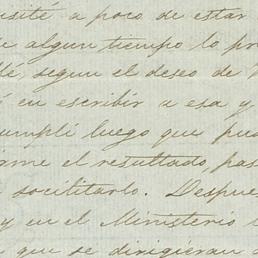 visité a poco de estar
algun tiempo lo pr
segun el deseo de
en escribir a esa y
cumplí luego que pu
rme el resultado, pas
socilitarlo. Despue
y en el Ministerio
que se dirigieran